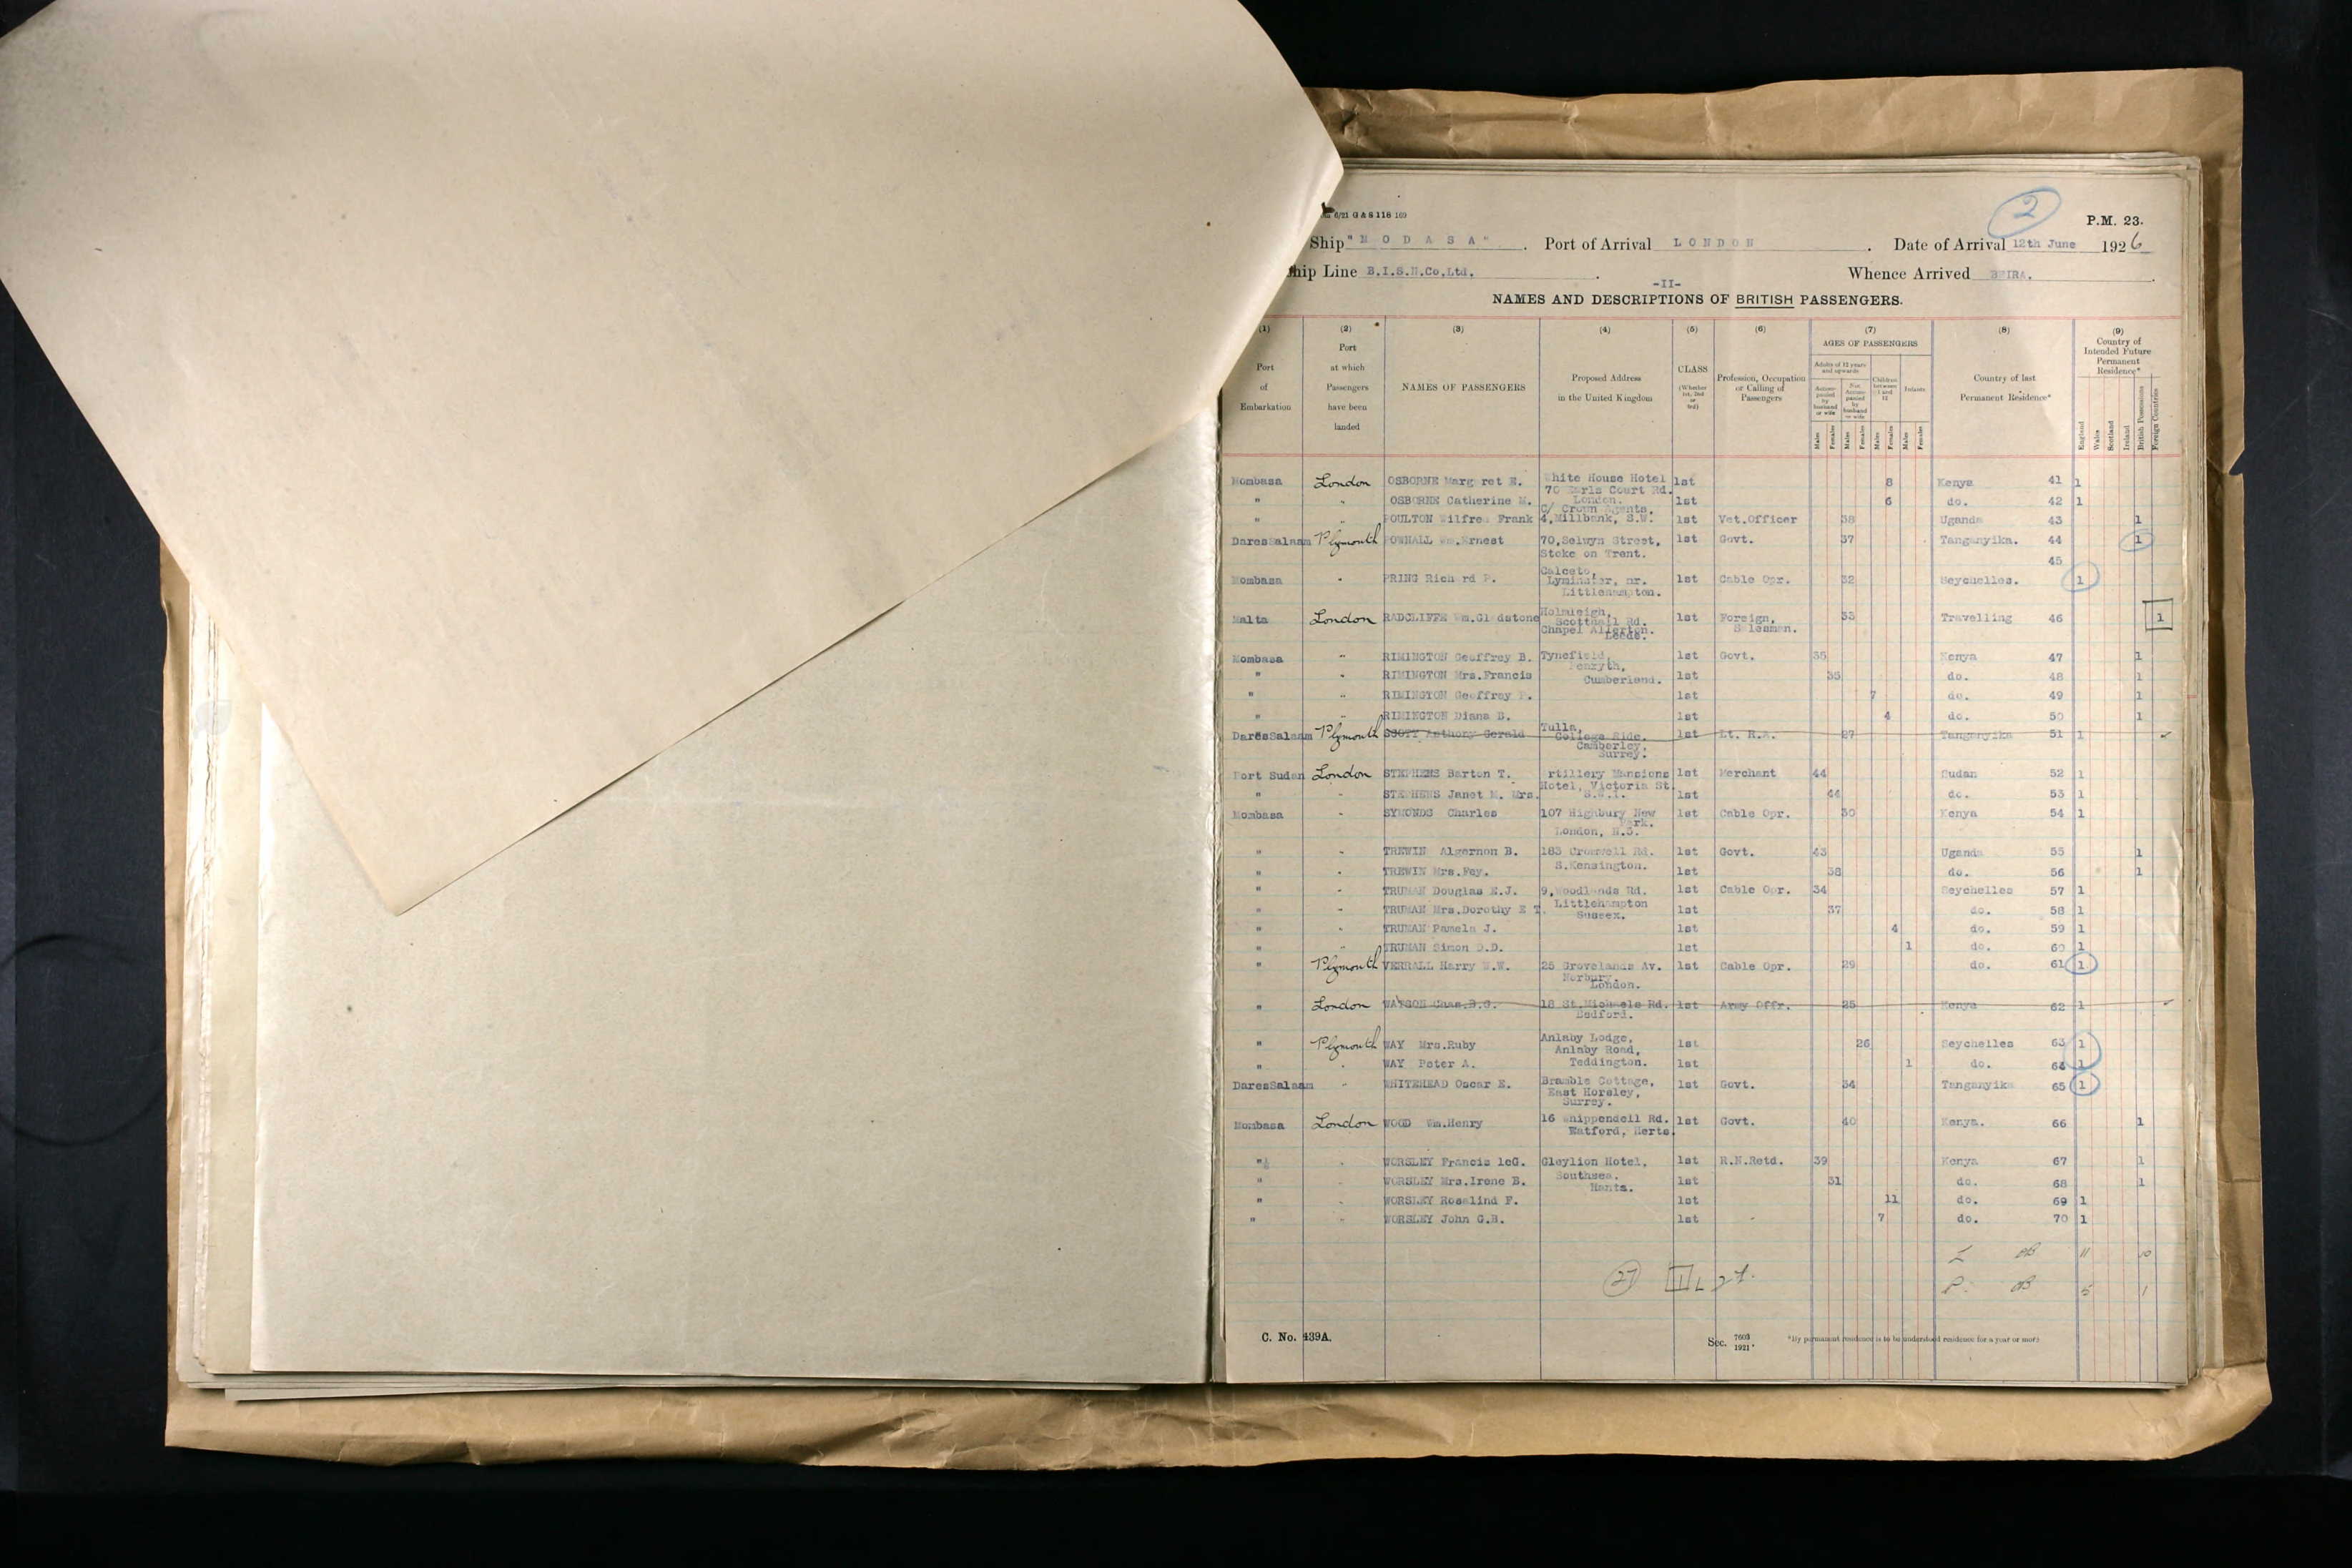 6/21 G & S 118 169
2
P.M. 23.
Ship "MODASA". Port of Arrival LONDON. Date of Arrival 12th June 1926
hip Line B.I.S.N.Co,Ltd. Whence Arrived BEIRA.
-II-
NAMES AND DESCRIPTIONS OF BRITISH PASSENGERS.
(1) (2) (3) (4) (5) (6) (7) (8) (9)
Port of Embarkation
Port at which Passengers have been landed
NAMES OF PASSENGERS
Proposed Address in the United Kingdom
CLASS (Whether 1st, 2nd or 3rd)
Profession, Occupation or Calling of Passengers
AGES OF PASSENGERS
Adults of 12 years and upwards
Accompanied by husband or wife
Not Accompanied by husband or wife
Children between 1 and 12
Infants
Males Females Males Females Males Females Males Females
Country of last Permanent Residence*
Country of Intended Future Permanent Residence*
England Wales Scotland Ireland British Possessions Foreign Countries
Mombasa London OSBORNE Margaret E. White House Hotel 1st 8 Kenya 41 1
70 Earls Court Rd.
" " OSBORNE Catherine M. London. 1st 6 do. 42 1
C/ Crown Agents,
" " POULTON Wilfred Frank 4,Millbank, S.W. 1st Vet.Officer 38 Uganda 43 1
DaresSalaam Plymouth POWNALL Wm.Ernest 70,Selwyn Street, 1st Govt. 37 Tanganyika. 44 1
Stoke on Trent.
45
Calceto,
Mombasa " PRING Richard P. Lyminster, nr. 1st Cable Opr. 32 Seychelles. 1
Littlehampton.
Holmleigh,
Malta London RADCLIFFE Wm.Gladstone Scotthall Rd. 1st Foreign, 33 Travelling 46 1
Chapel Allerton. Salesman.
Leeds.
Mombasa " RIMINGTON Geoffrey B. Tynefield, 1st Govt. 35 Kenya 47 1
Penryth,
" " RIMINGTON Mrs.Francis Cumberland. 1st 35 do. 48 1
" " RIMINGTON Geoffrey P. 1st 7 do. 49 1
" " RIMINGTON Diana B. 1st 4 do. 50 1
Tulla,
DaresSalaam Plymouth SCOTT Anthony Gerald College Ride, 1st Lt. R.A. 27 Tanganyika 51 1
Camberley,
Surrey.
Port Sudan London STEPHENS Barton T. Artillery Mansions 1st Merchant 44 Sudan 52 1
Hotel, Victoria St.
" " STEPHENS Janet M. Mrs. S.W.1. 1st 44 do. 53 1
Mombasa " SYMONDS Charles 107 Highbury New 1st Cable Opr. 30 Kenya 54 1
Park.
London, N.5.
" " TREWIN Algernon B. 183 Cromwell Rd. 1st Govt. 43 Uganda 55 1
S.Kensington.
" " TREWIN Mrs.Fey. 1st 38 do. 56 1
" " TRUMAN Douglas E.J. 9,Woodlands Rd. 1st Cable Opr. 34 Seychelles 57 1
Littlehampton
" " TRUMAN Mrs.Dorothy E T. Sussex. 1st 37 do. 58 1
" " TRUMAN Pamela J. 1st 4 do. 59 1
" " TRUMAN Simon D.D. 1st 1 do. 60 1
" Plymouth VERRALL Harry W.W. 25 Grovelands Av. 1st Cable Opr. 29 do. 61 1
Norbury.
London.
" London WATSON Chas.B.G. 18 St.Michaels Rd. 1st Army Offr. 25 Kenya 62 1
Bedford.
" Plymouth WAY Mrs.Ruby Anlaby Lodge, 1st 26 Seychelles 63 1
Anlaby Road,
" " WAY Peter A. Teddington. 1st 1 do. 64 1
DaresSalaam " WHITEHEAD Oscar E. Bramble Cottage, 1st Govt. 34 Tanganyika 65 1
East Horsley,
Surrey.
Mombasa London WOOD Wm.Henry 16 Whippendell Rd. 1st Govt. 40 Kenya. 66 1
Watford, Herts.
" " WORSLEY Francis leG. Gleylion Hotel, 1st R.N.Retd. 39 Kenya 67 1
Southsea.
" " WORSLEY Mrs.Irene B. Hants. 1st 31 do. 68 1
" " WORSLEY Rosalind F. 1st 11 do. 69 1
" " WORSLEY John G.B. 1st 7 do. 70 1
L 11 10
27 1 L
P. 5 1
C. No. 439A.
Sec. 7603 1921.
*By permanent residence is to be understood residence for a year or more